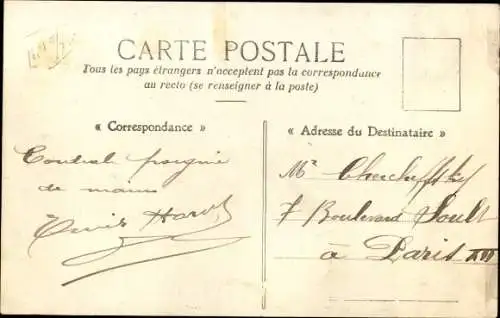 CARTE POSTALE
Tous les pays étrangers n'acceptent pas la correspondance
au recto (se renseigner à la poste)
« Correspondance »
« Adresse du Destinataire »
de
Mr
7 Boulevard Soult
à Paris XII